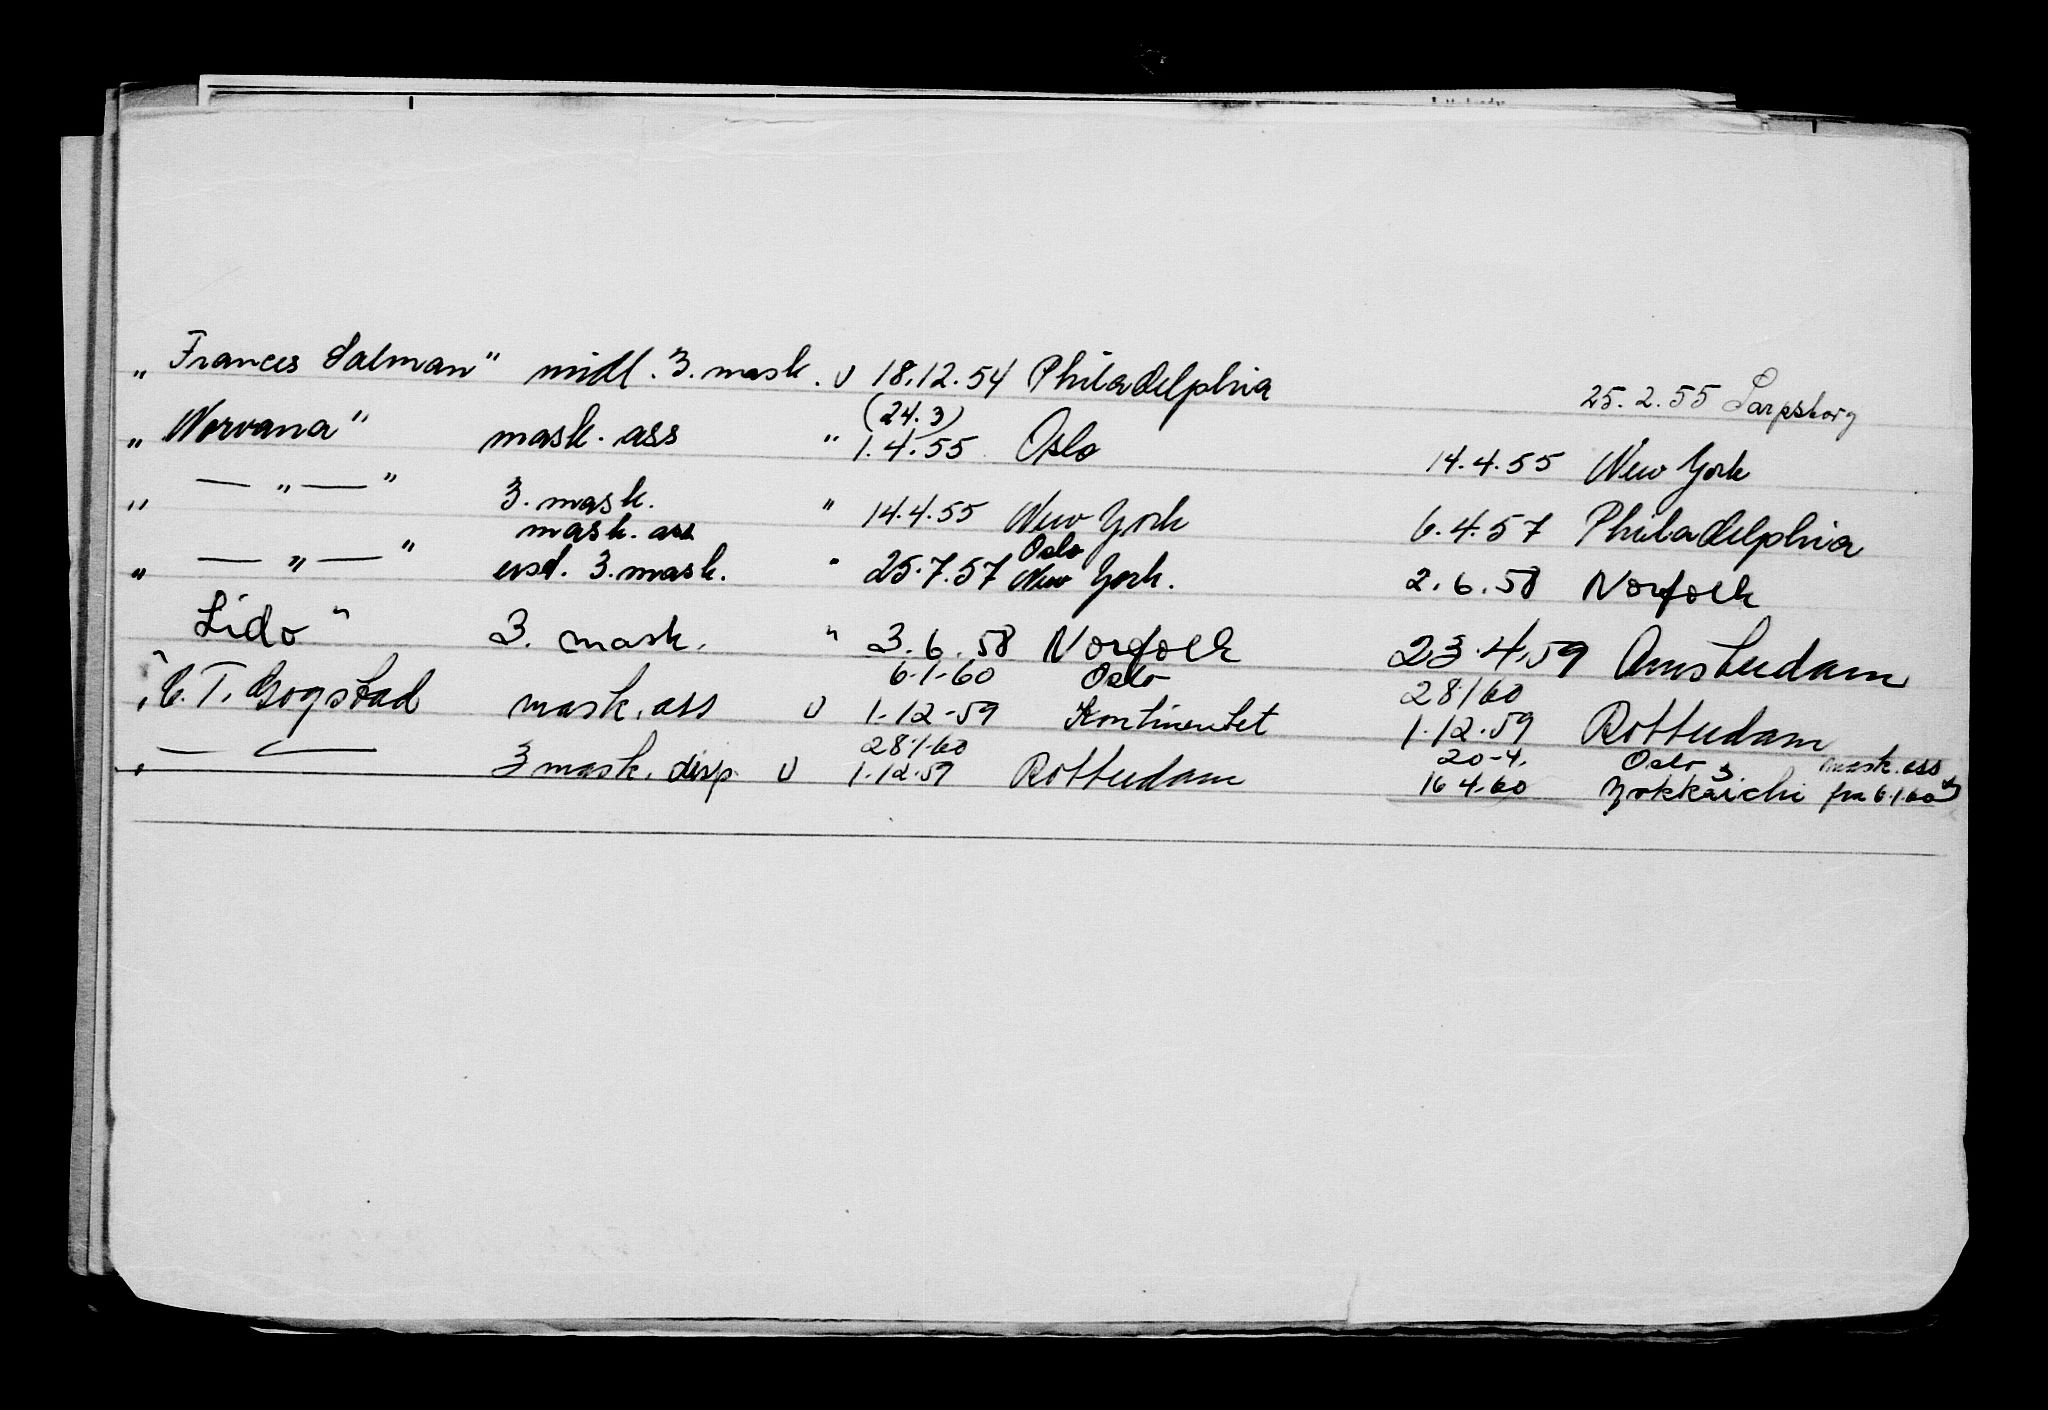 „ Frances Salman" midl. 3. mask. u 18.12.54 Philadelphia 25.2.55 Sarpsborg
(24.3)
„ Norvana" mask. ass " 1.4.55 Oslo 14.4.55 New York
„ — „ — " 3. mask. " 14.4.55 New York 6.4.57 Philadelphia
mask. ass Oslo
„ — „ — " 3. mask. " 25.7.57 New York. 2.6.58 Norfolk
Lido " 3. mask. " 3.6.58 Norfolk 23.4.59 Amsterdam
6-1-60 Oslo 28/1 60
" C. T. Gogstad mask. ass u 1-12-59 Kontinentet 1.12.59 Rotterdam
28-1-60 20-4. Oslo mask. ass
„ — „ — 3 mask. disp. u 1-12-59 Rotterdam 16 4.60 Yokkaichi fra 6-1-60